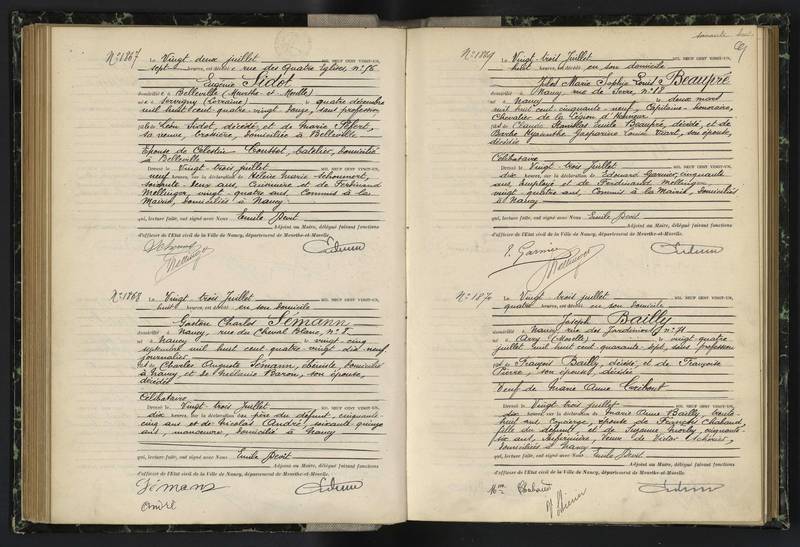 N° 1867
Le Vingt-deux juillet MIL NEUF CENT VINGT-UN,
sept heures, est décédée rue des Quatre Eglises, n° 56
Eugénie Sidot
domiciliée à Belleville (Meurthe-et-Moselle)
née à Servigny (Lorraine) le quatre décembre
mil huit cent quatre-vingt-douze, sans profession,
fille de Léon Sidot, décédé, et de Marie
sa veuve, domiciliée à Belleville
Epouse de Célestin Coussot, batelier, domicilié
à Belleville
Dressé le Vingt-trois juillet MIL NEUF CENT VINGT-UN,
neuf heures, sur la déclaration de Hélène Marie Schoumert,
soixante-deux ans, Casernière et de Ferdinand
Mellinger, vingt-quatre ans, Commis à la
Mairie, domiciliés à Nancy
qui, lecture faite, ont signé avec Nous Emile Devit
Adjoint au Maire, délégué faisant fonctions
d'officier de l'Etat civil de la Ville de Nancy, département de Meurthe-et-Moselle.
Mellinger
N° 1868
Le Vingt-trois Juillet MIL NEUF CENT VINGT-UN,
huit heures, est décédé en son domicile
Gaston Charles Sémann
domicilié à Nancy, rue du Cheval Blanc, n° 8
né à Nancy le vingt-cinq
septembre mil huit cent quatre-vingt-dix-neuf,
journalier
fils de Charles Auguste Sémann, ébéniste, domicilié
à Nancy et de Mélanie Baron, son épouse,
décédée
Célibataire
Dressé le Vingt-trois Juillet MIL NEUF CENT VINGT-UN,
dix heures, sur la déclaration du père du défunt, cinquante-
cinq ans et de Nicolas André, soixante-quinze
ans, manœuvre, domicilié à Nancy
qui, lecture faite, ont signé avec Nous Emile Devit
Adjoint au Maire, délégué faisant fonctions
d'officier de l'Etat civil de la Ville de Nancy, département de Meurthe-et-Moselle.
Sémann
André
N° 1869
Le Vingt-trois Juillet MIL NEUF CENT VINGT-UN,
huit heures, est décédé en son domicile
Marie Sophie Louis Beaupré
Nancy, rue de Serre, n° 18
né à Nancy le deux mars
mil huit cent cinquante-neuf, Capitaine honoraire,
Chevalier de la Légion d'Honneur
fils de Claude Stanislas Emile Beaupré, décédé, et de
Barbe Hyacinthe Gasparine Louise son épouse,
décédée
Célibataire
Dressé le Vingt-trois juillet MIL NEUF CENT VINGT-UN,
dix heures, sur la déclaration de Edouard Garnier, cinquante
ans, employé et de Ferdinand Mellinger,
vingt-quatre ans, Commis à la Mairie, domiciliés
à Nancy
qui, lecture faite, ont signé avec Nous Emile Devit
Adjoint au Maire, délégué faisant fonctions
d'officier de l'Etat civil de la Ville de Nancy, département de Meurthe-et-Moselle.
E. Garnier
Mellinger
N° 1870
Le Vingt-trois juillet MIL NEUF CENT VINGT-UN,
quatre heures, est décédé en son domicile
Joseph Bailly
domicilié à Nancy, rue des Jardiniers, n° 71
né à Arry (Moselle) le vingt-quatre
juillet mil huit cent quarante-sept, sans profession
fils de François Bailly, décédé, et de Françoise
Pierre, son épouse, décédée
Veuf de Marie Anne
Dressé le Vingt-trois juillet MIL NEUF CENT VINGT-UN,
dix heures, sur la déclaration de Marie Anne Bailly, trente-
huit ans, Concierge, épouse de François Chabaud,
fille du défunt, et de Suzanne cinquante-
six ans, Infirmière, veuve de Victor
domiciliées à Nancy
qui, lecture faite, ont signé avec Nous Emile Devit
Adjoint au Maire, délégué faisant fonctions
d'officier de l'Etat civil de la Ville de Nancy, département de Meurthe-et-Moselle.
Mme Chabaud